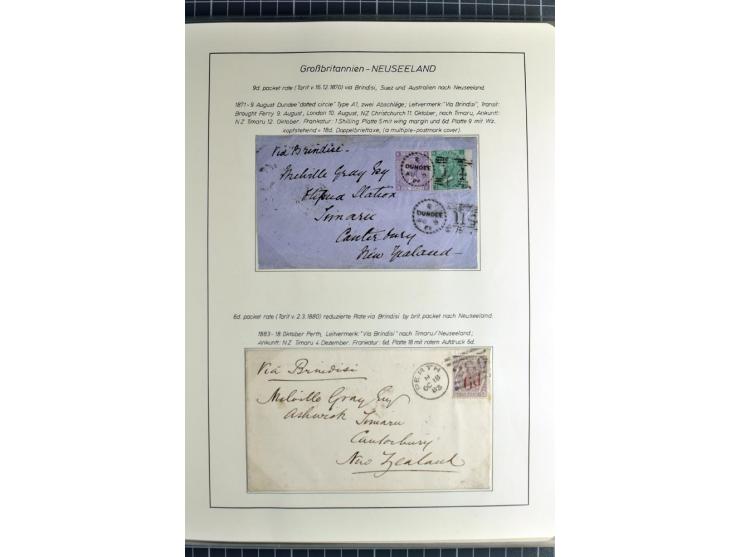 Großbritannien - NEUSEELAND
9d. packet rate (Tarif v. 15.12.1870) via Brindisi, Suez und Australien nach Neuseeland.
1871 - 9. August Dundee "dotted circle" Type A1, zwei Abschläge; Leitvermerk: "Via Brindisi", Transit:
Brought Ferry 9. August, London 10. August, NZ Christchurch 11. Oktober, nach Timaru, Ankunft:
NZ Timaru 12. Oktober. Frankatur: 1 Shilling Platte 5 mit wing margin und 6d. Platte 9 mit Wz.
kopfstehend = 18d. Doppelbrieftaxe, (a multiple-postmark cover).
Via Brindisi
Melville Gray Esq
Station
Timaru
Canterbury
New Zealand
DUNDEE
DUNDEE
115
6d. packet rate (Tarif v. 2.3.1880) reduzierte Rate via Brindisi by brit. packet nach Neuseeland.
1883 - 18. Oktober Perth, Leitvermerk: "Via Brindisi" nach Timaru/Neuseeland;
Ankunft: NZ Timaru 4. Dezember. Frankatur: 6d. Platte 18 mit rotem Aufdruck 6d.
Via Brindisi
PERTH
OC 18
83
6d
Melville Gray Esq
Ashwick Timaru
Canterbury
New Zealand